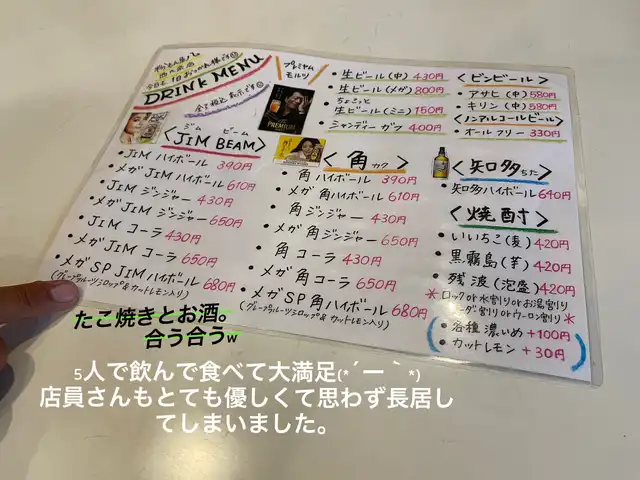 DRINK MENU
全て税込表示です
プレミヤム
モルツ
PREMIUM
・生ビール(中) 430円
・生ビール(メガ) 800円
ちょこっと
生ビール(ミニ) 150円
シャンディーガフ 400円
<ビンビール>
アサヒ(中) 580円
キリン(中) 580円
<ノンアルコールビール>
オールフリー 330円
ジム ビーム
<JIM BEAM>
・JIM ハイボール 390円
・メガJIM ハイボール 610円
・JIM ジンジャー 430円
・メガJIM ジンジャー 650円
・JIM コーラ 430円
・メガJIM コーラ 650円
・メガSP JIM ハイボール 680円
(グレープフルーツシロップ&カットレモン入り)
<角 カク>
・角 ハイボール 390円
・メガ 角ハイボール 610円
・角 ジンジャー 430円
・メガ 角ジンジャー 650円
・角 コーラ 430円
・メガ 角コーラ 650円
・メガSP角ハイボール 680円
(グレープフルーツシロップ&カットレモン入り)
<知多 ちた>
・知多ハイボール 640円
<焼酎>
・いいちこ(麦) 420円
・黒霧島(芋) 420円
・残波(泡盛) 420円
*ロックor水割りorお湯割り
ソーダー割りorウーロン割り*
・各種 濃いめ +100円
・カットレモン +30円
たこ焼きとお酒。
合う合うw
5人で飲んで食べて大満足(*´ー｀*)
店員さんもとても優しくて思わず長居し
てしまいました。